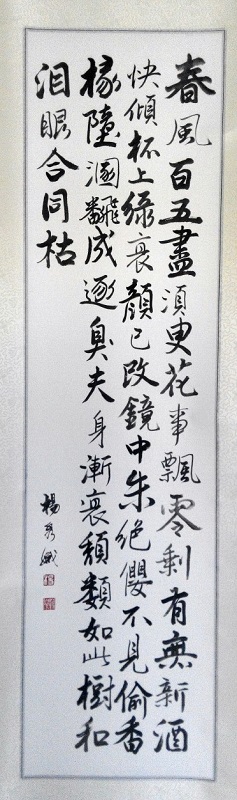 春風百五盡須臾花事飄零剩有無新酒
快傾杯上綠衰顏已改鏡中朱絕纓不見偷香
掾墮溷飜成逐臭夫身漸衰頹類如此樹和
泪眼合同枯
楊秀娥